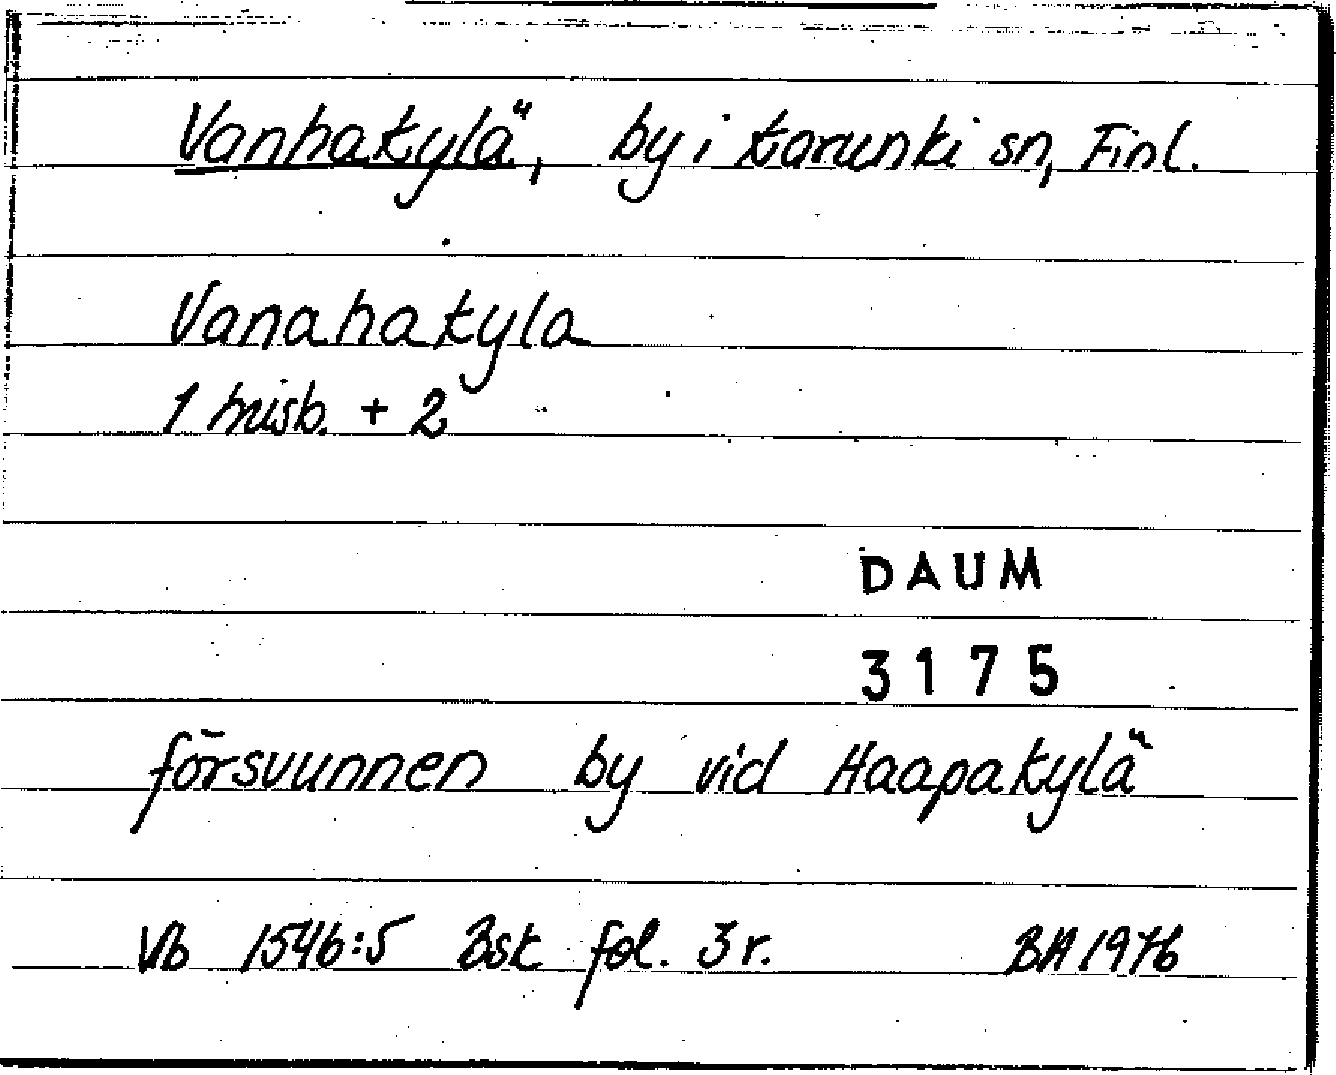 Vanhakylä, by i Karunki sn, Finl.
Vanahakyla
1 husb. + 2
DAUM
3175
försvunnen by vid Haapakylä
Vb 1546:5 Bsk fol. 3 r. BA 1976